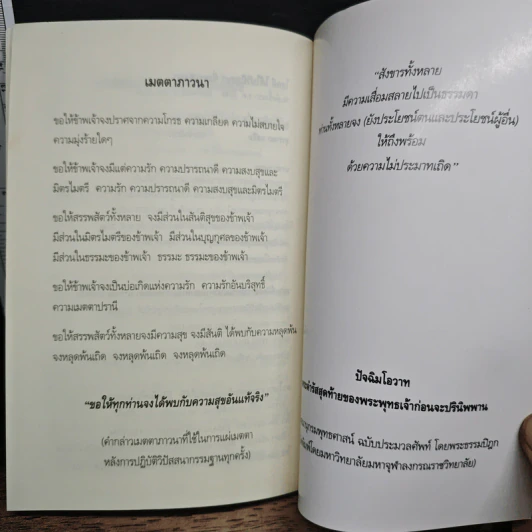 เมตตาภาวนา
ขอให้ข้าพเจ้าจงปราศจากความโกรธ ความเกลียด ความไม่สบายใจ
ความมุ่งร้ายใดๆ
ขอให้ข้าพเจ้าจงมีแต่ความรัก ความปรารถนาดี ความสงบสุขและ
มิตรไมตรี ความรัก ความปรารถนาดี ความสงบสุขและมิตรไมตรี
ขอให้สรรพสัตว์ทั้งหลาย จงมีส่วนในสันติสุขของข้าพเจ้า
มีส่วนในมิตรไมตรีของข้าพเจ้า มีส่วนในบุญกุศลของข้าพเจ้า
มีส่วนในธรรมะของข้าพเจ้า ธรรมะ ธรรมะของข้าพเจ้า
ขอให้ข้าพเจ้าจงเป็นบ่อเกิดแห่งความรัก ความรักอันบริสุทธิ์
ความเมตตาปรานี
ขอให้สรรพสัตว์ทั้งหลายจงมีความสุข จงมีสันติ ได้พบกับความหลุดพ้น
จงหลุดพ้นเถิด จงหลุดพ้นเถิด จงหลุดพ้นเถิด
"ขอให้ทุกท่านจงได้พบกับความสุขอันแท้จริง"
(คำกล่าวเมตตาภาวนาที่ใช้ในการแผ่เมตตา
หลังการปฏิบัติวิปัสสนากรรมฐานทุกครั้ง)
"สังขารทั้งหลาย
มีความเสื่อมสลายไปเป็นธรรมดา
ท่านทั้งหลายจง (ยังประโยชน์ตนและประโยชน์ผู้อื่น)
ให้ถึงพร้อม
ด้วยความไม่ประมาทเถิด"
ปัจฉิมโอวาท
สุดท้ายของพระพุทธเจ้าก่อนจะปรินิพพาน
พุทธศาสน์ ฉบับประมวลศัพท์ โดยพระธรรมปิฎก
โดยมหาวิทยาลัยมหาจุฬาลงกรณราชวิทยาลัย)